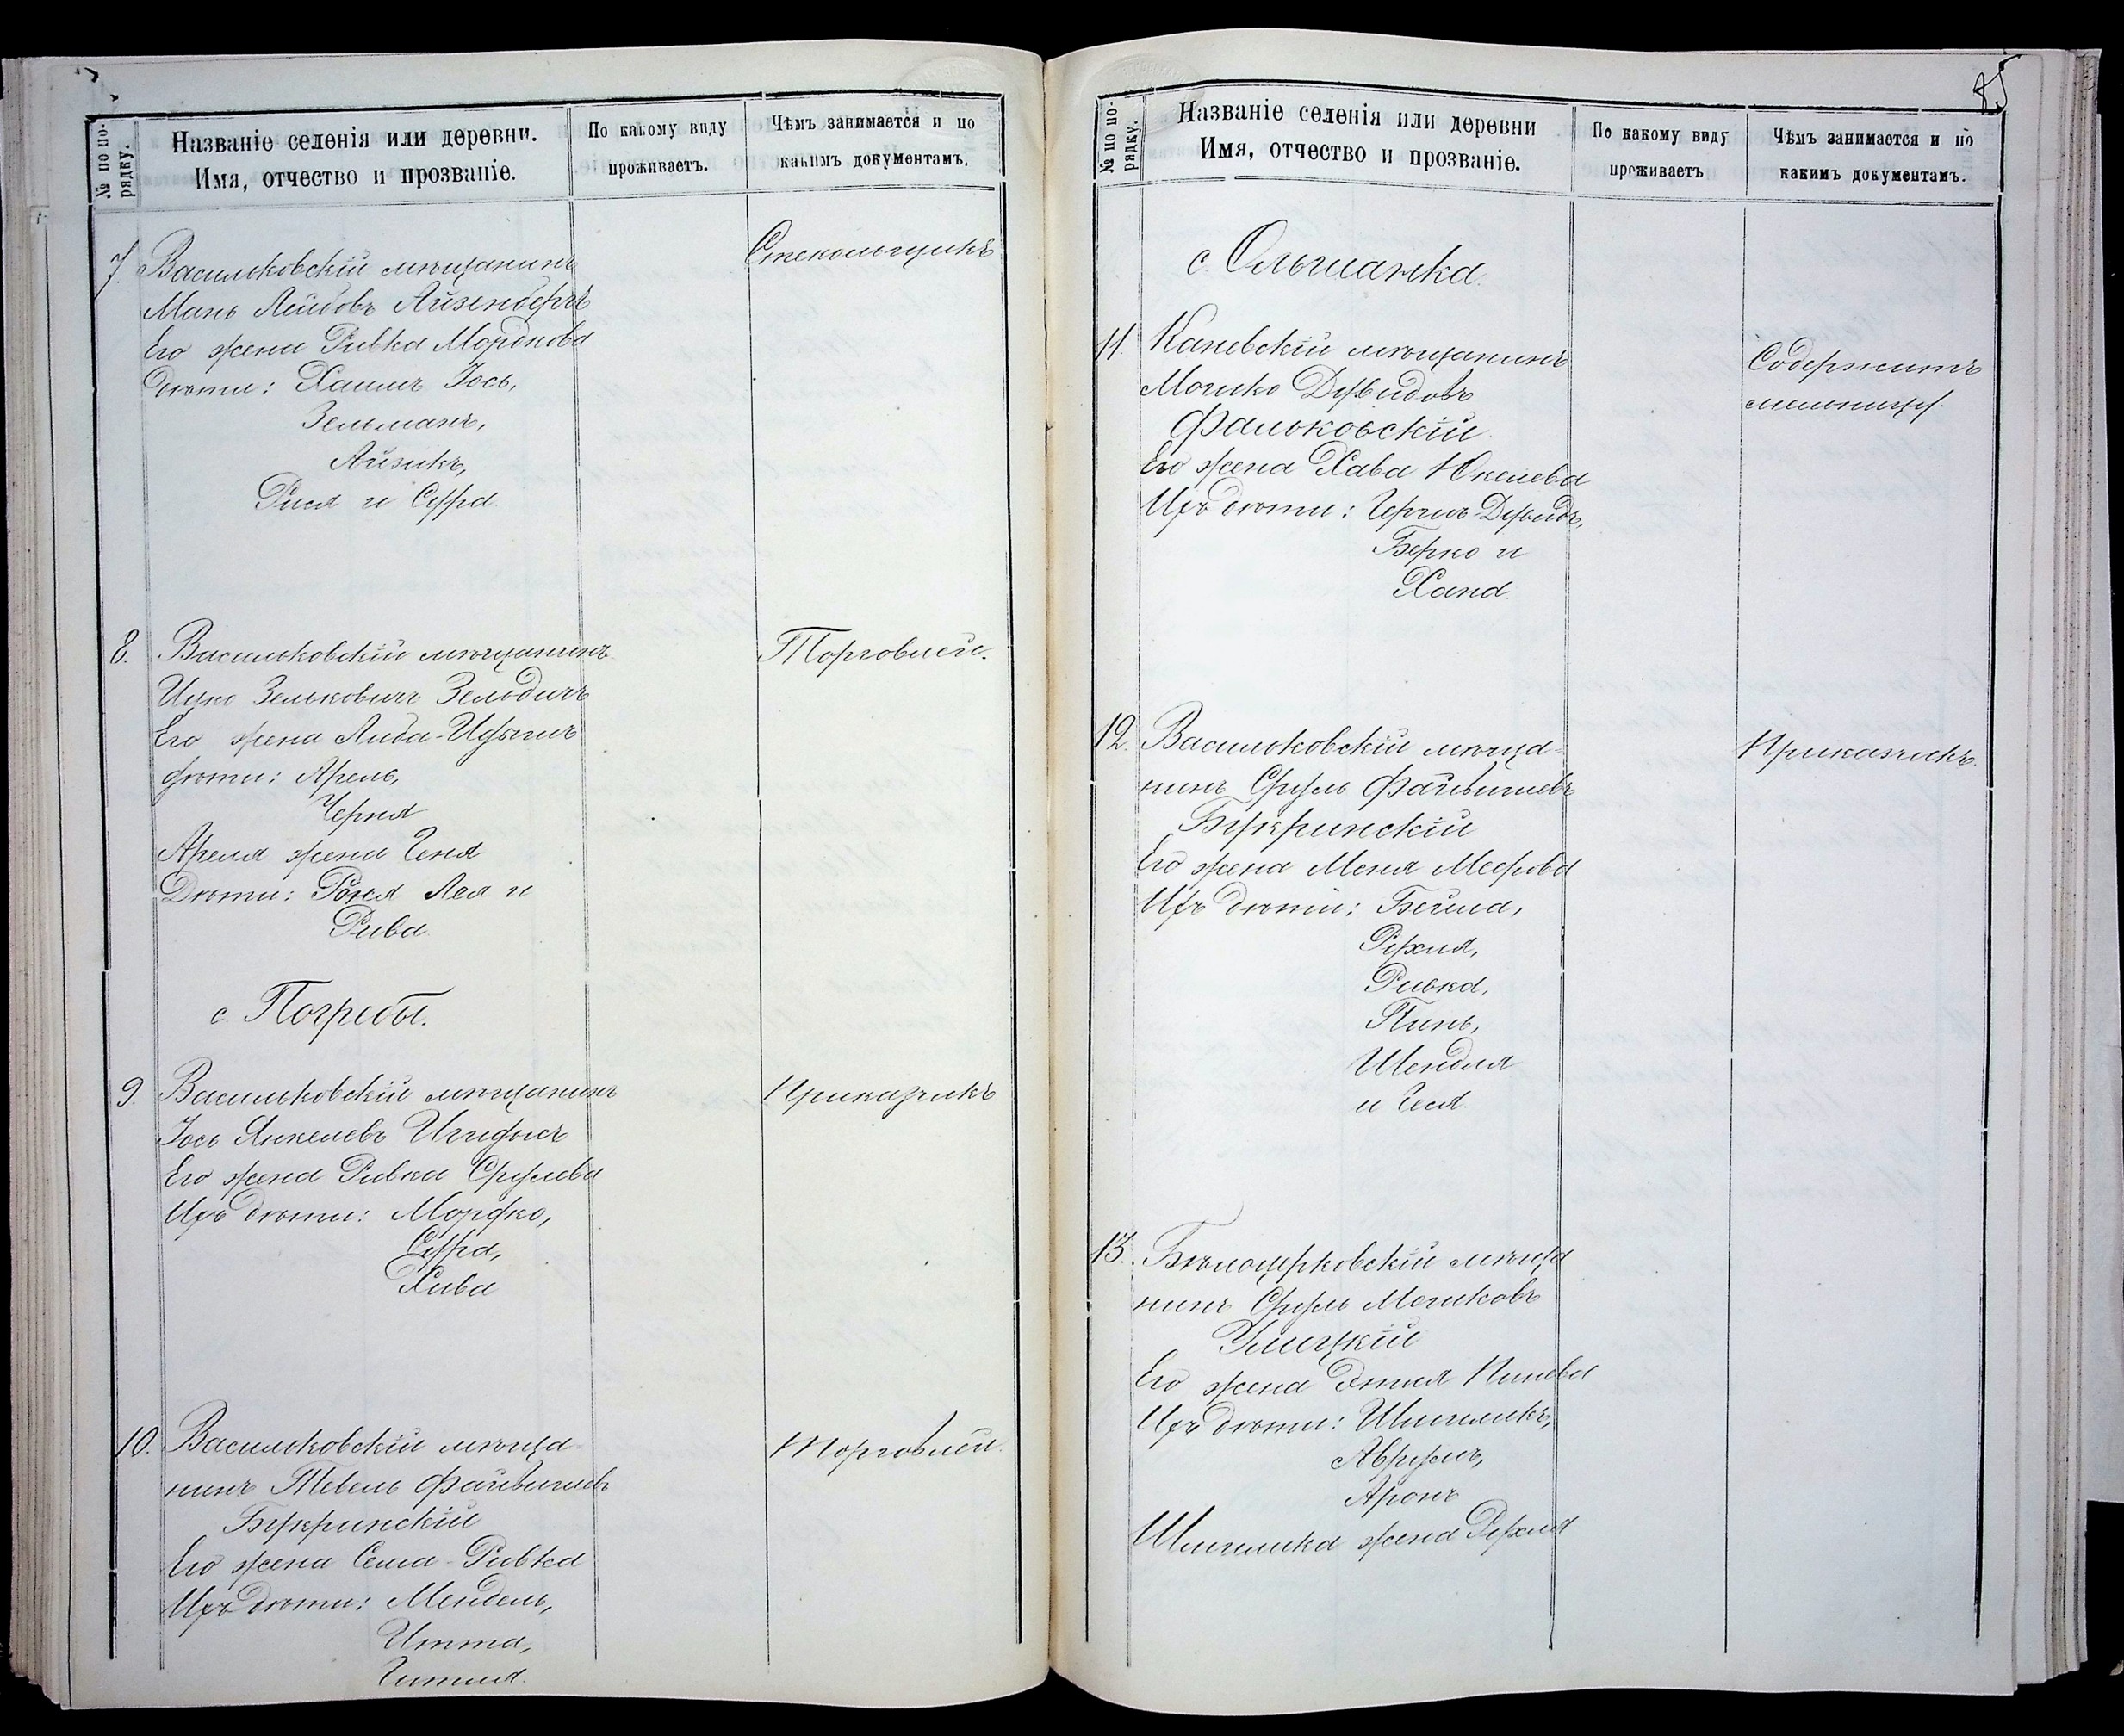 № по по-
рядку.
Названіе селенія или деревни.
Имя, отчество и прозваніе.
По какому виду
проживаетъ.
Чѣмъ занимается и по
какимъ документамъ.
7. Васильковскій мѣщанинъ
Стекольщикъ
Мань Лейбовъ Айзенбергъ
Его жена Ривка Мордкова
Дѣти: Хаимъ Іось,
Зельманъ,
Айзикъ,
Рися и Сурра.
8. Васильковскій мѣщанинъ
Торговлей.
Ицко Зельковичъ Зельдичъ
Его жена Либа
дѣти: Арель,
Черня
Ареля жена Геня
Дѣти: Ройся Лея и
Рива.
с. Погребы.
9. Васильковскій мѣщанинъ
Приказчикъ
Іось Янкелевъ
Его жена Ривка Срулева
Ихъ дѣти: Мордко,
Сурра,
Хива
10. Васильковскій мѣща-
торговлей.
нинъ Тевель Файвишевъ
Букринскій
Его жена Сема-Ривка
Ихъ дѣти: Мендель,
Итта,
Гитля.
85
№ по по-
рядку.
Названіе селенія или деревни
Имя, отчество и прозваніе.
По какому виду
проживаетъ
Чѣмъ занимается и по
какимъ документамъ.
с. Ольшанка.
11. Каневскій мѣщанинъ
Содержитъ
Мошко Дувидовъ
мельницу.
Фальковскій.
Его жена Хава Юкелева
Ихъ дѣти: Гершъ-Дувидъ,
Берко и
Хана.
12. Васильковскій мѣща-
Приказчикъ.
нинъ Сруль Файвишевъ
Букринскій
Его жена Меня Меерова
Ихъ дѣти: Бейла,
Рухля,
Ривка,
Пинь,
Шендля
и Геся.
13. Бѣлоцерковскій мѣща
нинъ Сруль Мошковъ
Улицкій
Его жена Этля Пинева
Ихъ дѣти: Шмиликъ,
Аврумъ,
Аронъ
Шмилика жена Рухля